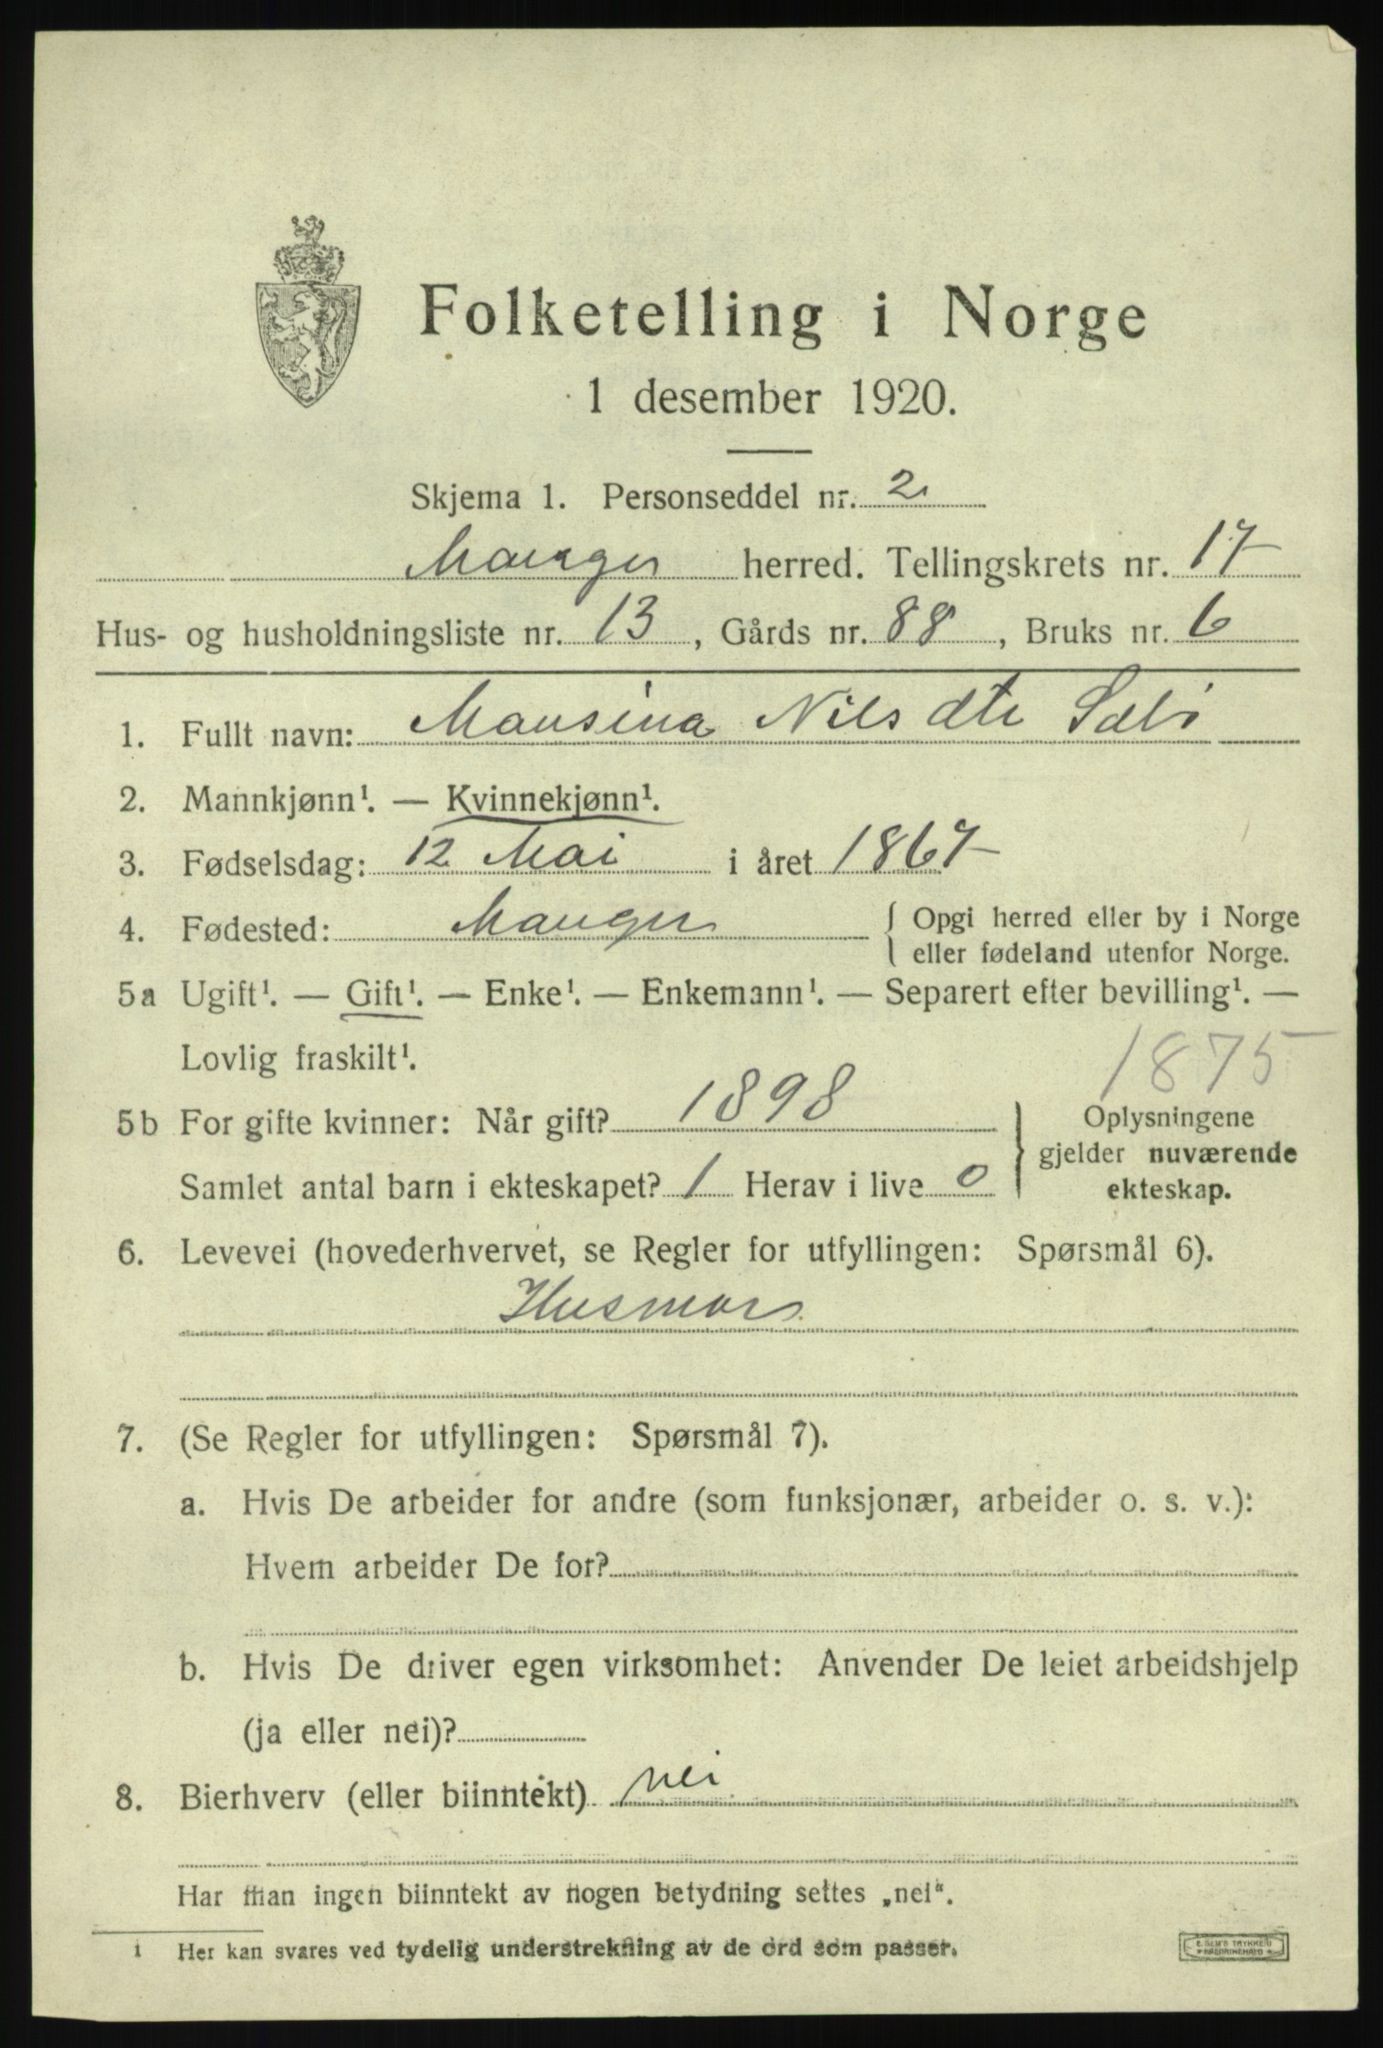 Folketelling i Norge
1 desember 1920.
Skjema 1. Personseddel nr. 2
Manger herred. Tellingskrets nr. 17
Hus- og husholdningsliste nr. 13, Gårds nr. 88, Bruks nr. 6
1. Fullt navn: Mansina Nilsdtr Sæbø
2. Mannkjønn¹. — Kvinnekjønn¹.
3. Fødselsdag: 12 Mai i året 1867
4. Fødested: Manger { Opgi herred eller by i Norge
eller fødeland utenfor Norge.
5a Ugift¹. — Gift¹. — Enke¹. — Enkemann¹. — Separert efter bevilling¹. —
Lovlig fraskilt¹.
1875
5b For gifte kvinner: Når gift? 1898
Samlet antal barn i ekteskapet? 1 Herav i live 0
Oplysningene
gjelder nuværende
ekteskap.
6. Levevei (hovederhvervet, se Regler for utfyllingen: Spørsmål 6).
Husmor
7. (Se Regler for utfyllingen: Spørsmål 7).
a. Hvis De arbeider for andre (som funksjonær, arbeider o. s. v.):
Hvem arbeider De for?
b. Hvis De driver egen virksomhet: Anvender De leiet arbeidshjelp
(ja eller nei)?
8. Bierhverv (eller biinntekt) nei
Har man ingen biinntekt av nogen betydning settes „nei“.
1 Her kan svares ved tydelig understrekning av de ord som passer.